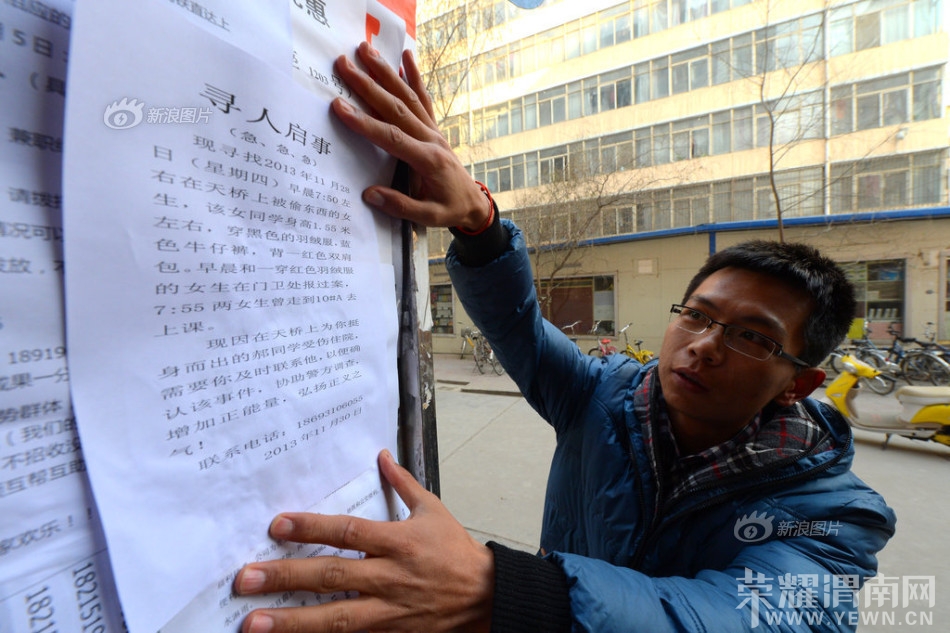 寻人启事
（急、急、急）
现寻找2013年11月28
日（星期四）早晨7:50左
右在天桥上被偷东西的女
生，该女同学身高1.55米
左右，穿黑色的羽绒服，蓝
色牛仔裤，背一红色双肩
包。早晨和一穿红色羽绒服
的女生在门卫处报过案，
7:55两女生曾走到10#A去
上课。
现因在天桥上为你挺
身而出的郝同学受伤住院，
需要你及时联系他，以便确
认该事件，协助警方调查，
增加正能量，弘扬正义之
气！
联系电话：18693106055
2013年11月30日
新浪图片
新浪图片
荣耀渭南网
WWW.YEWN.CN
1203
兼职
请拨
情况可以
18919
成果一分
势群体
（我们的
不招收
互帮互助
家欢乐！
18215